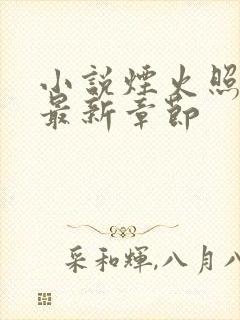 小說煙火照
最新章節
采和輝,八月八